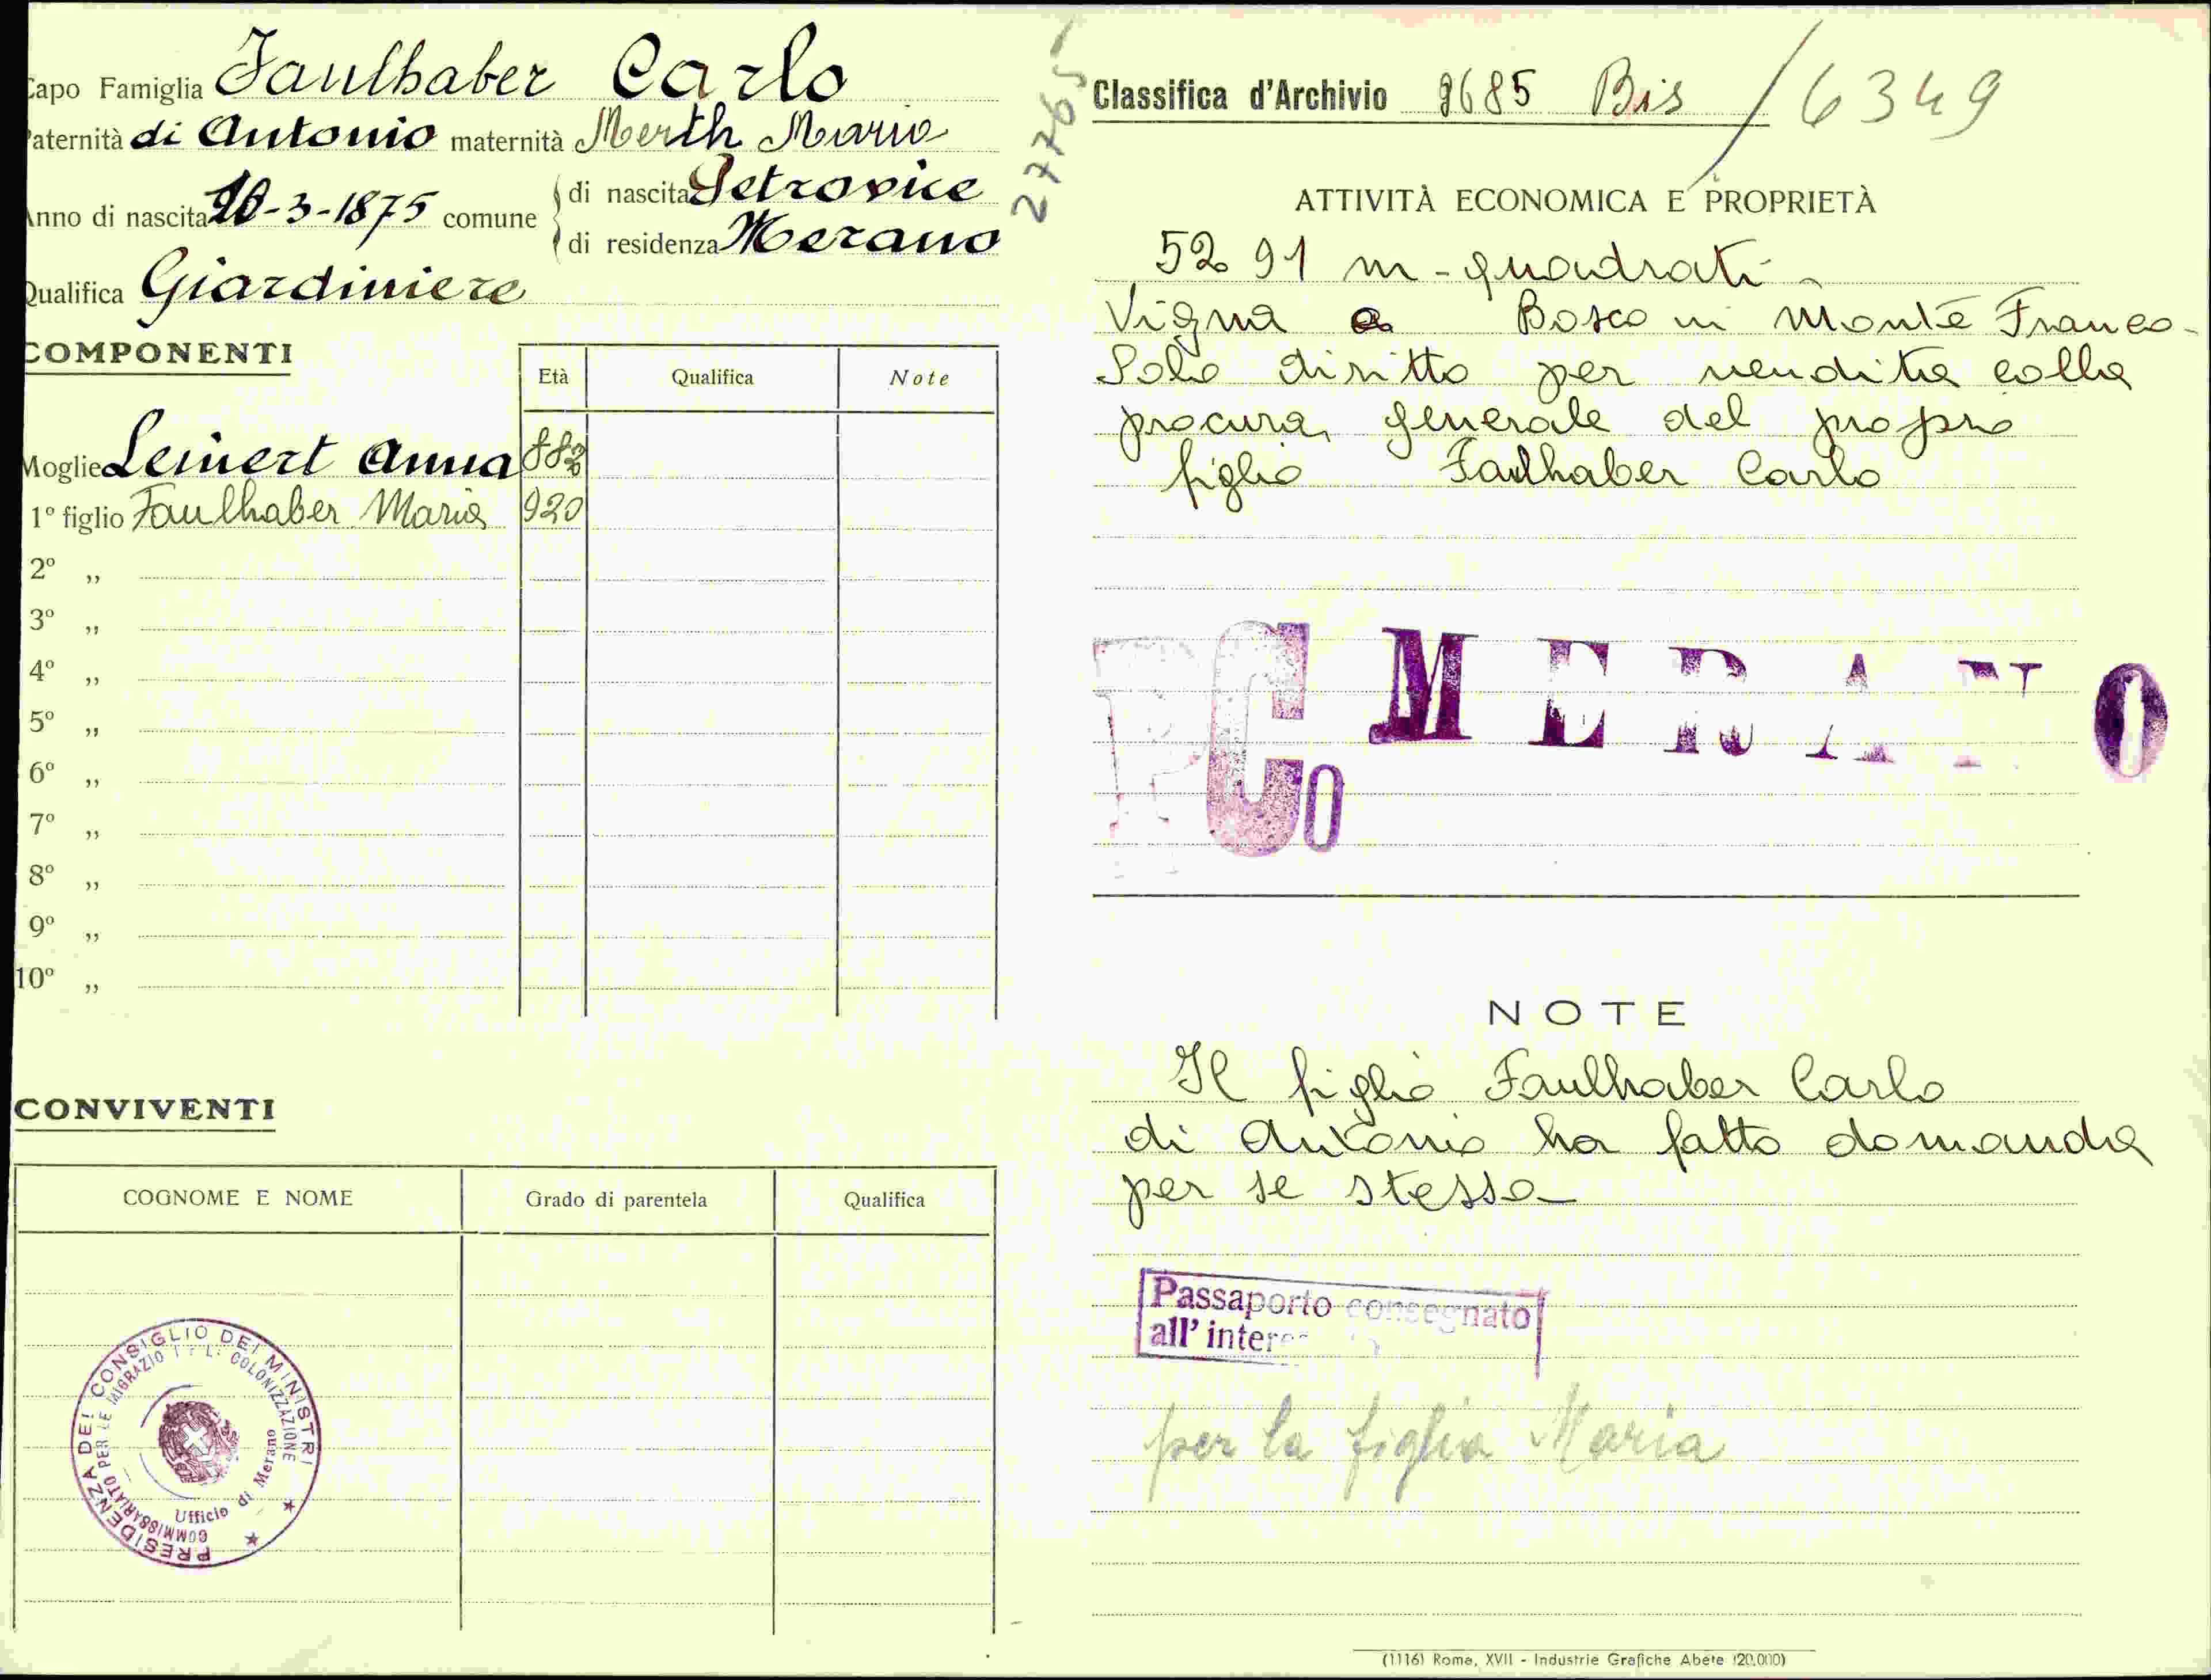 Capo Famiglia Faulhaber Carlo
Paternità di Antonio maternità Merth Maria
Anno di nascita -3-1875 comune
di nascita Petrovice
di residenza Merano
Qualifica Giardiniere
COMPONENTI
Età Qualifica Note
Moglie Leinert Anna 882
1º figlio Faulhaber Maria 920
2º „
3º „
4º „
5º „
6º „
7º „
8º „
9º „
10º „
CONVIVENTI
COGNOME E NOME Grado di parentela Qualifica
PRESIDENZA DEL CONSIGLIO DEI MINISTRI
COMMISSARIATO PER LE MIGRAZIONI E LA COLONIZZAZIONE
Ufficio di Merano
27765
Classifica d'Archivio 9685 Bis / 6349
ATTIVITÀ ECONOMICA E PROPRIETÀ
5291 m-quadrati -
Vigna a Bosco in Monte Franco-
Solo diritto per vendita colla
procura generale del proprio
figlio Faulhaber Carlo
Co MERANO
NOTE
Il figlio Faulhaber Carlo
di Antonio ha fatto domanda
per se stesso
Passaporto consegnato
all'
per la figlia Maria
(1116) Roma, XVII - Industrie Grafiche Abete (20.000)